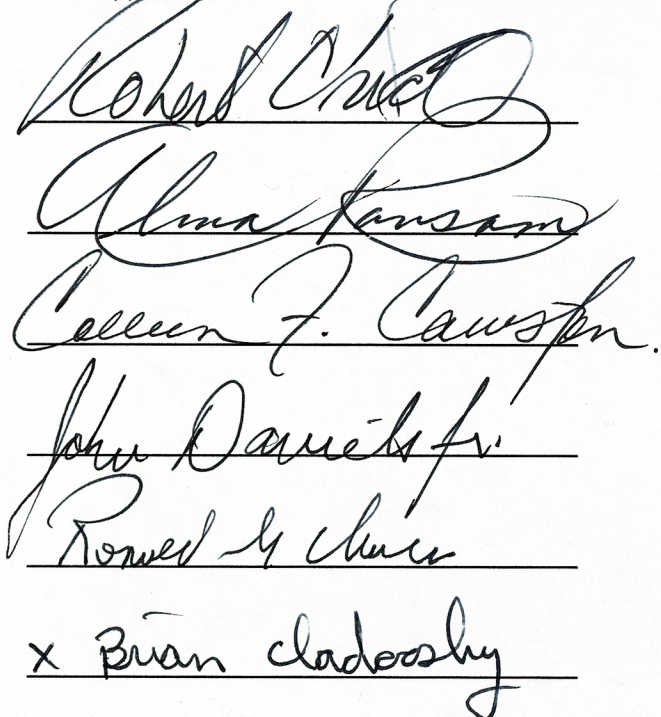 Robert
Alma Ransom
Colleen F. Cawston.
John Daniels Jr.
Ronald G
x Brian Cladoosby